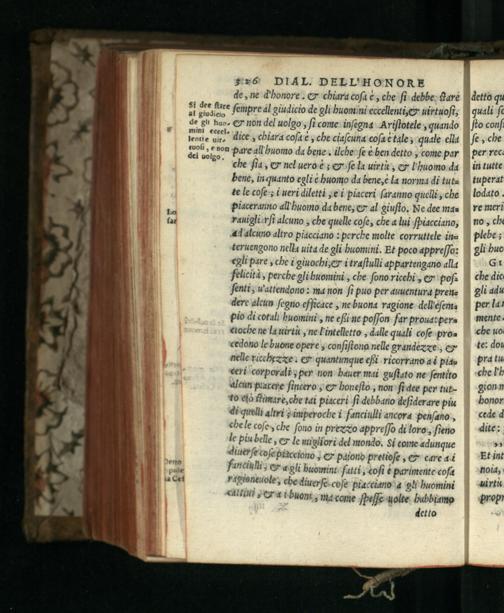 326 DIAL. DELL'HONORE
Si dee stare
al giudicio
de gli huo-
mini eccel-
lenti e uir-
tuosi, e non
del uolgo.
de, ne d'honore. & chiara cosa è, che si debbe stare
sempre al giudicio de gli huomini eccellenti, & uirtuosi,
& non del uolgo, sì come insegna Aristotele, quando
dice, chiara cosa è, che ciascuna cosa è tale, quale ella
pare all'huomo da bene. ilche se è ben detto, come par
che sia, & nel uero è; & se la uirtù, & l'huomo da
bene, in quanto egli è huomo da bene, è la norma di tut-
te le cose; i ueri diletti, e i piaceri saranno quelli, che
piaceranno all'huomo da bene, & al giusto. Ne dee ma-
rauigliarsi alcuno, che quelle cose, che a lui spiacciano,
ad alcuno altro piacciano: perche molte corruttele in-
teruengono nella uita de gli huomini. Et poco appresso:
egli pare, che i giuochi, & i trastulli appartengano alla
felicità, perche gli huomini, che sono ricchi, & pos-
senti, u'attendono: ma non si può per auuentura pren-
dere alcun segno efficace, ne buona ragione dell'essem-
pio di cotali huomini, ne essi ne posson far proua: per-
cioche ne la uirtù, ne l'intelletto, dalle quali cose pro-
cedono le buone opere, consistono nelle grandezze, &
nelle ricchezze. & quantunque essi ricorrano a i pia-
ceri corporali, per non hauer mai gustato ne sentito
alcun piacere sincero, & honesto, non si dee per tut-
to ciò stimare, che tai piaceri si debbano desiderare più
di quelli altri; imperoche i fanciulli ancora pensano,
che le cose, che sono in prezzo appresso di loro, sieno
le piu belle, & le migliori del mondo. Sì come adunque
diuerse cose piacciono, & paiono pretiose, & care a i
fanciulli, & a gli huomini fatti, così è parimente cosa
ragioneuole, che diuerse cose piacciano a gli huomini
cattiui, & a i buoni, ma come spesse uolte habbiamo
detto